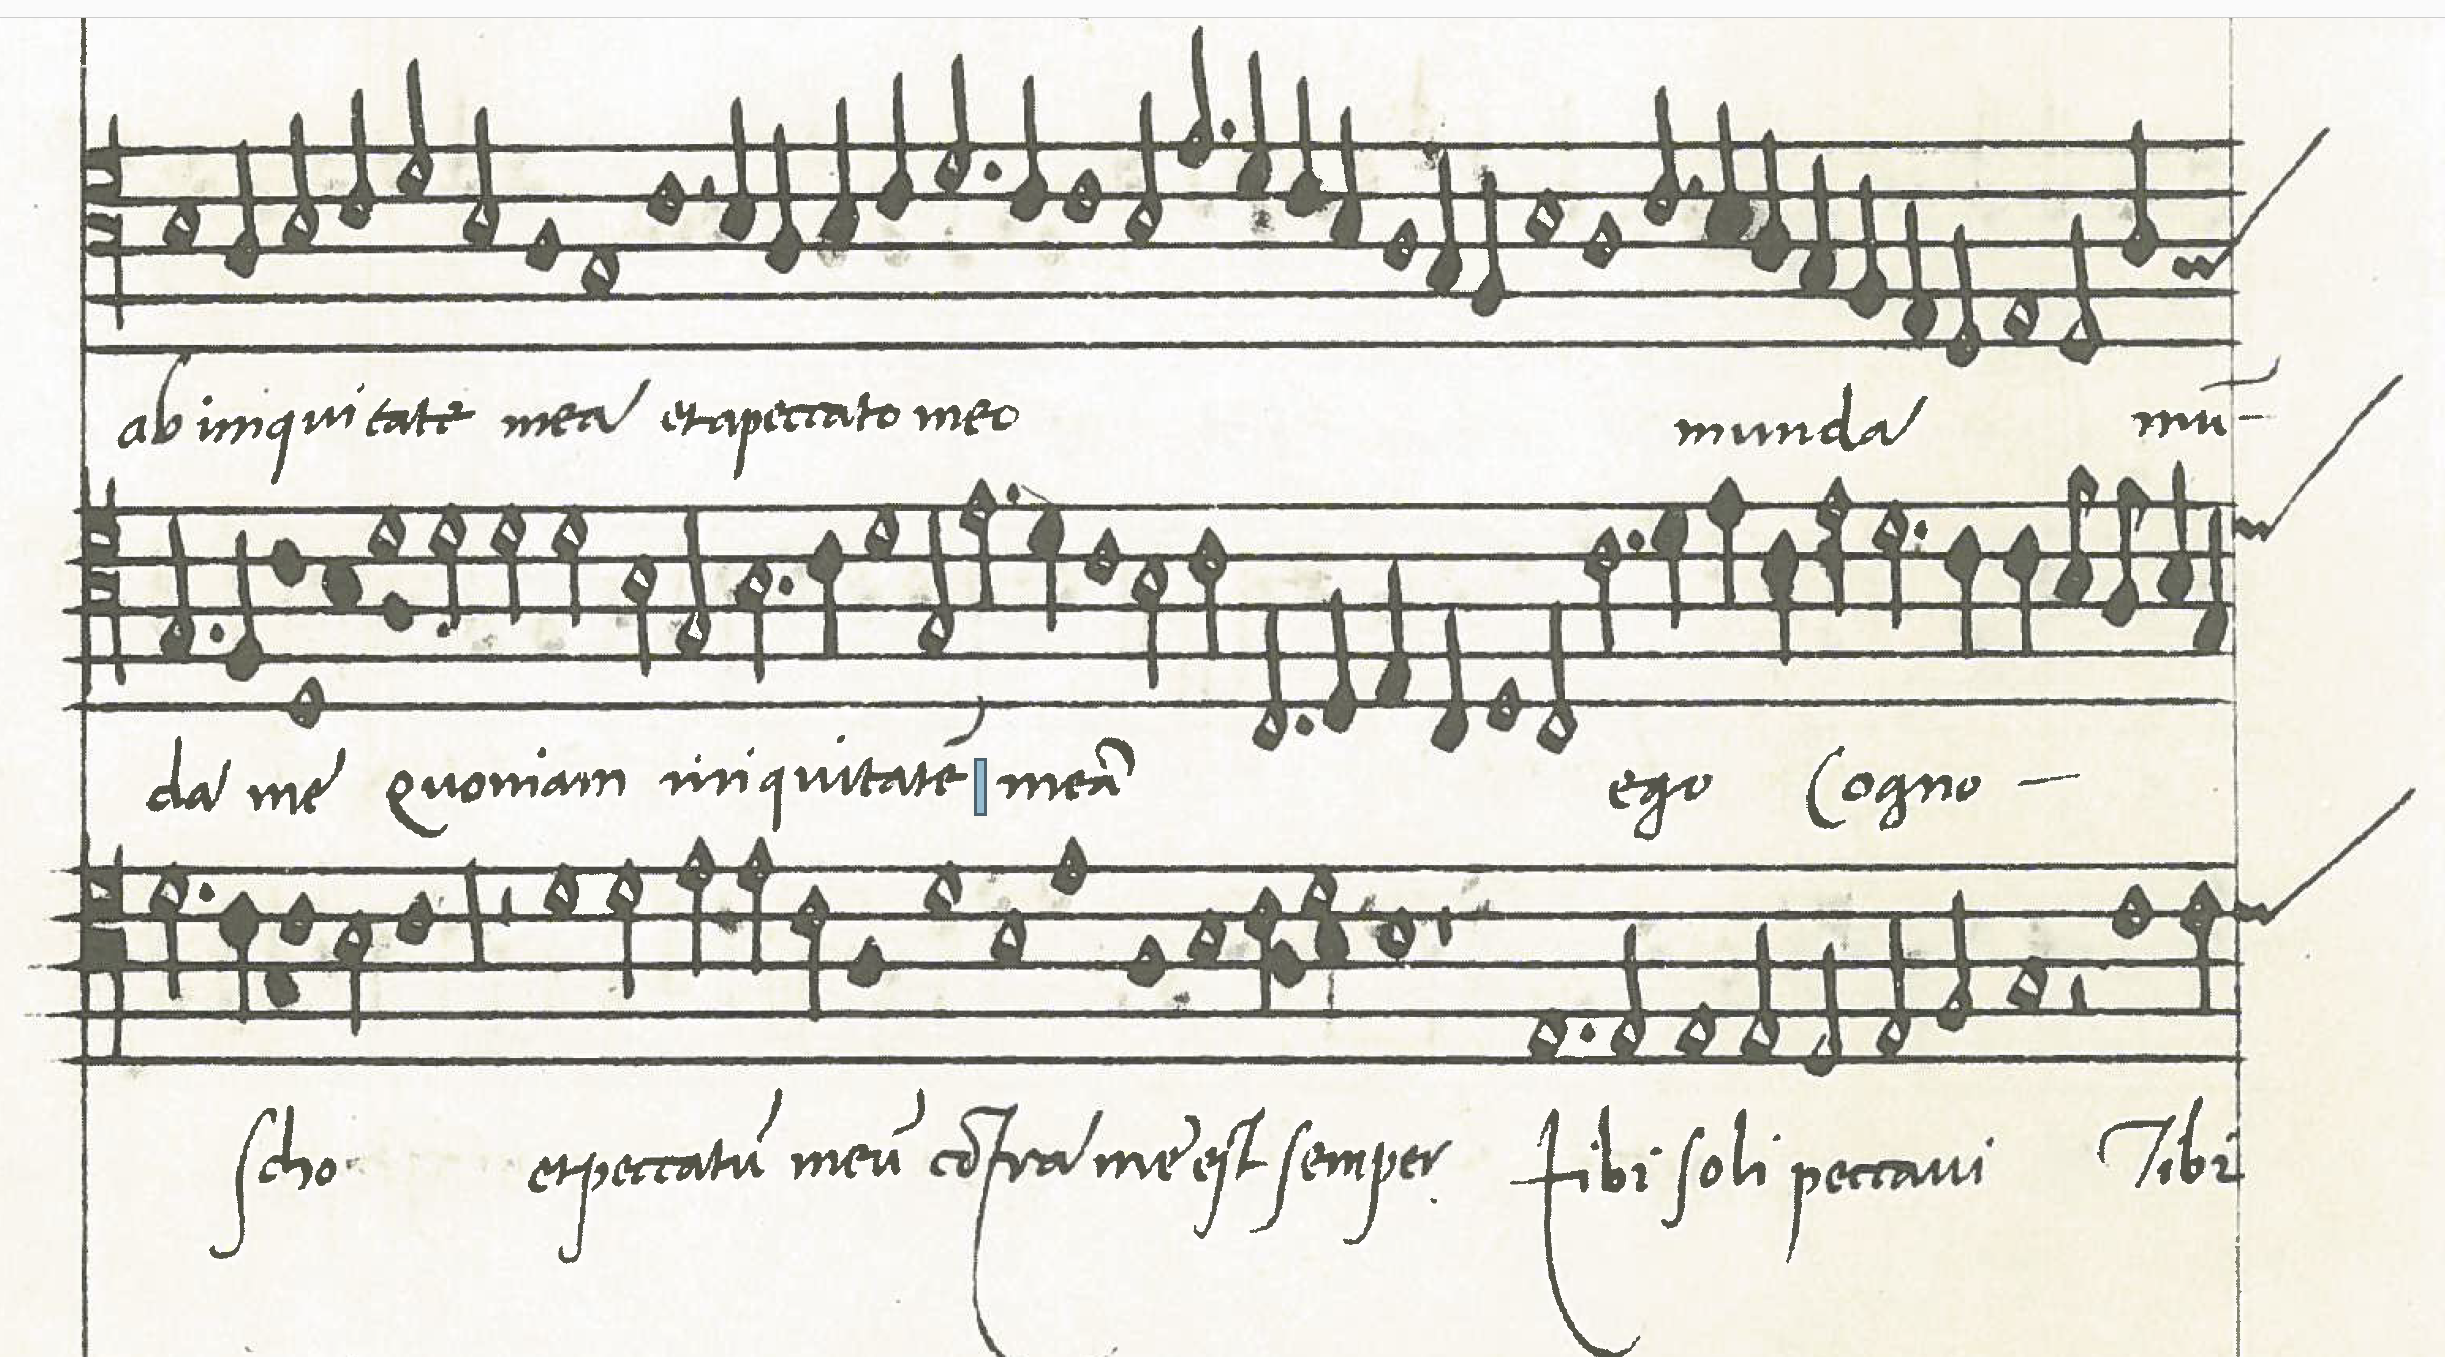 ab iniquitate mea et a peccato meo munda mū-
da me quoniam iniquitatē meā ego Cogno —
scho et peccatū meū cōtra me est semper tibi soli peccavi Tibi